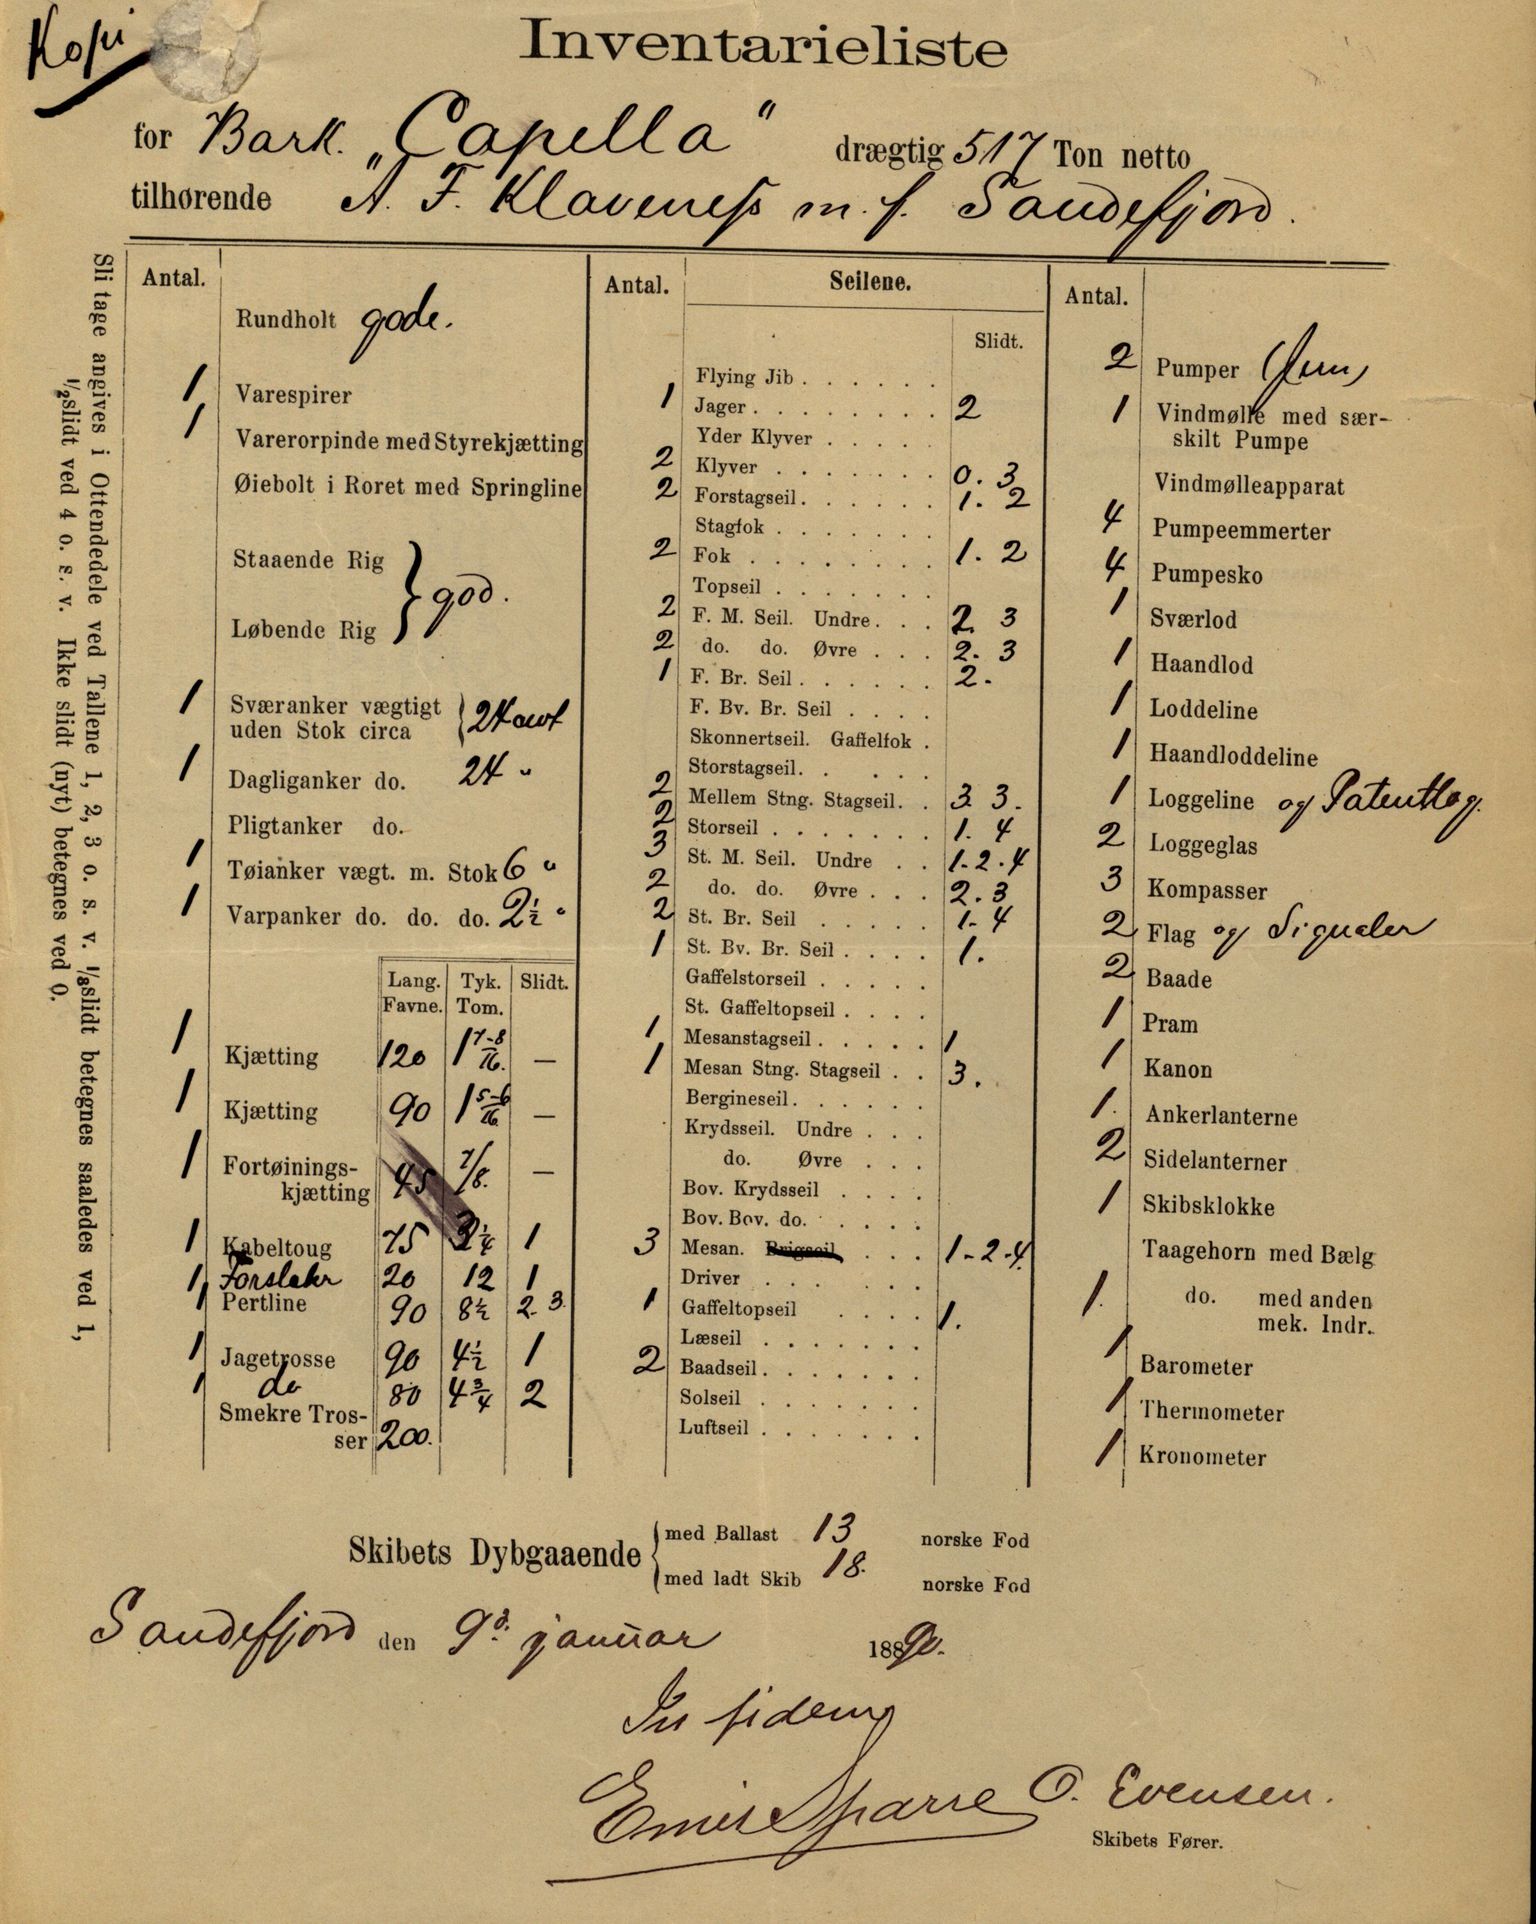 Kopi
Inventarieliste
for Bark. „Capella“ drægtig 517 Ton netto
tilhørende A. F. Klaveness m. fl. Sandefjord.
Sli tage angives i Ottendedele ved Tallene 1, 2, 3 o. s. v. 1/8 slidt betegnes saaledes ved 1,
1/2 slidt ved 4 o. s. v. Ikke slidt (nyt) betegnes ved 0.
Antal.
Rundholt gode.
1 Varespirer
1 Varerorpinde med Styrekjætting
Øiebolt i Roret med Springline
Staaende Rig
} god.
Løbende Rig
1 Sværanker vægtigt
uden Stok circa } 24 cwt
1 Dagliganker do. 24 "
Pligtanker do.
1 Tøianker vægt. m. Stok 6 "
1 Varpanker do. do. do. 2 1/2 "
Lang. Tyk. Slidt.
Favne. Tom.
1 Kjætting 120 1 7-8/16. —
1 Kjætting 90 1 5-6/16. —
1 Fortøinings-
kjætting 45 7/8. —
1 Kabeltoug 75 3 1/4 1
1 Forslehr 20 12 1
1 Pertline 90 8 1/2 2. 3.
1 Jagetrosse 90 4 1/2 1
1 do 80 4 3/4 2
Smekre Tros-
ser 200.
Antal. Seilene.
Slidt.
Flying Jib . . . . . .
1 Jager . . . . . . . . 2
Yder Klyver . . . . .
2 Klyver . . . . . . . 0. 3
2 Forstagseil . . . . . . 1. 2
Stagfok . . . . . . .
2 Fok . . . . . . . . 1. 2
Topseil . . . . . . .
2 F. M. Seil. Undre . . . 2. 3
2 do. do. Øvre . . . 2. 3
1 F. Br. Seil . . . . . . 2.
F. Bv. Br. Seil . . . .
Skonnertseil. Gaffelfok .
Storstagseil. . . . .
2 Mellem Stng. Stagseil. . 3 3.
2 Storseil . . . . . . . 1. 4
3 St. M. Seil. Undre . . 1. 2. 4
2 do. do. Øvre . . . 2. 3
2 St. Br. Seil . . . . . 1- 4
1 St. Bv. Br. Seil . . . . 1.
Gaffelstorseil . . . . .
St. Gaffeltopseil . . . .
1 Mesanstagseil . . . . . 1
1 Mesan Stng. Stagseil . . 3.
Bergineseil. . . . . .
Krydsseil. Undre . . .
do. Øvre . . .
Bov. Krydsseil . . . .
Bov. Bov. do. . . . .
3 Mesan. Brigseil . . . 1-2-4.
Driver . . . . . .
1 Gaffeltopseil . . . . 1.
Læseil . . . . . . .
2 Baadseil . . . . . . .
Solseil . . . . . . .
Luftseil . . . . . . .
Antal.
2 Pumper (Jern)
1 Vindmølle med sær-
skilt Pumpe
Vindmølleapparat
4 Pumpeemmerter
4 Pumpesko
1 Sværlod
1 Haandlod
1 Loddeline
1 Haandloddeline
1 Loggeline og Patentlog.
2 Loggeglas
3 Kompasser
2 Flag og Signaler
2 Baade
1 Pram
1 Kanon
1. Ankerlanterne
2 Sidelanterner
1 Skibsklokke
Taagehorn med Bælg
1. do. med anden
mek. Indr.
1 Barometer
1 Thermometer
1 Kronometer
Skibets Dybgaaende { med Ballast 13 norske Fod
med ladt Skib 18. norske Fod
Sandefjord den 9d. januar 1890.
In fidem
Emil Sparre O. Evensen.
Skibets Fører.